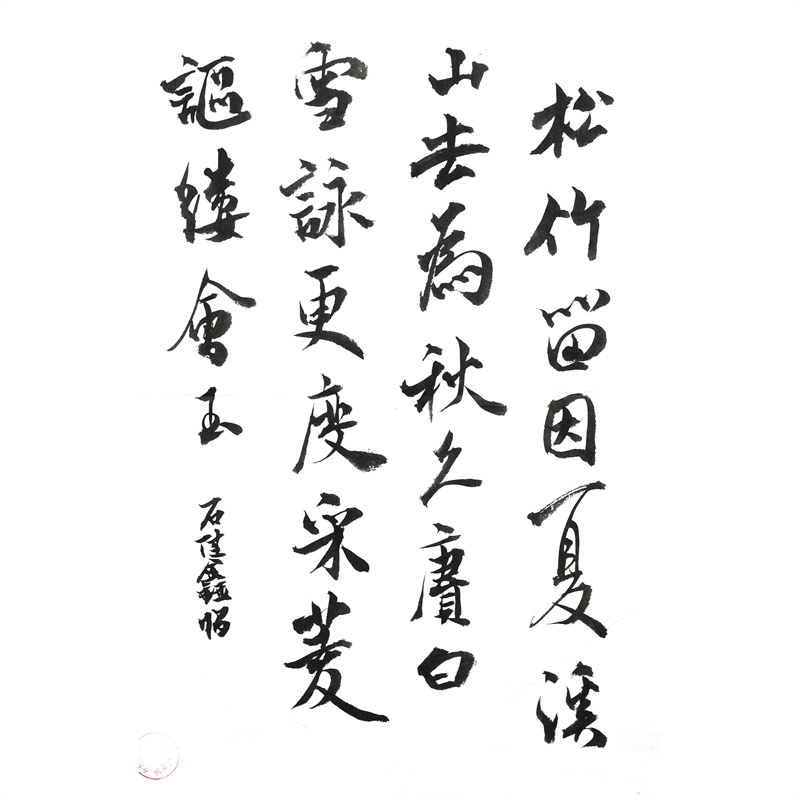 松竹留因夏溪
山去為秋久賡白
雪詠更度采菱
謳縷會玉
石鑫